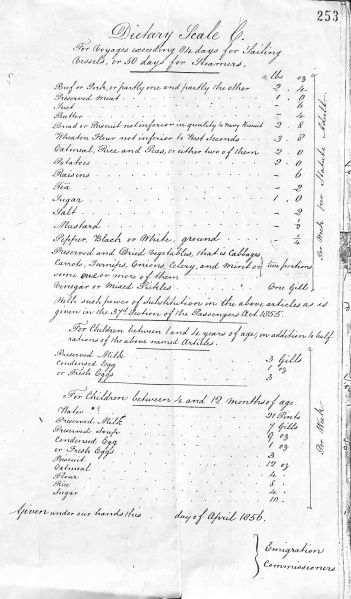 253
Dietary Scale C.
For Voyages exceeding 84 days for Sailing
Vessels, or 50 days for Steamers.
lbs oz
Beef or Pork, or partly one and partly the other 2 . 4
Preserved Meat 1 . 0
Suet 6
Butter 4
Bread or Biscuit not inferior in quality to Navy Biscuit 2 8
Wheaten Flour not inferior to best Seconds 3 8
Oatmeal, Rice and Peas, or either two of them 2 . 0
Potatoes 2 . 0
Raisins 6
Tea 2
Sugar 1 . 0
Salt 2
Mustard
Pepper, Black or White, ground
Preserved and Dried Vegetables, that is Cabbage,
Carrots, Turnips, Onions, Celery, and Mint or
some one or more of them two portions
Vinegar or Mixed Pickles One Gill
Per Week per Statute Adult
With such power of Substitution in the above articles as is
given in the 37th Section of the Passengers Act 1855.
For Children between 1 and 4 years of age, in addition to half
rations of the above named Articles.
Preserved Milk 3 Gills
Condensed Egg 1 oz
or Fresh Eggs 3
For Children between 4 and 12 months of age
Water 21 Pints
Preserved Milk 7 Gills
Preserved Soup 9 oz
Condensed Egg 1 oz
or Fresh Eggs 3
Biscuit 12 oz
Oatmeal 4
Flour 8
Rice 4
Sugar 10
Per Week
Given under our hands this day of April 1856.
Emigration
Commissioners